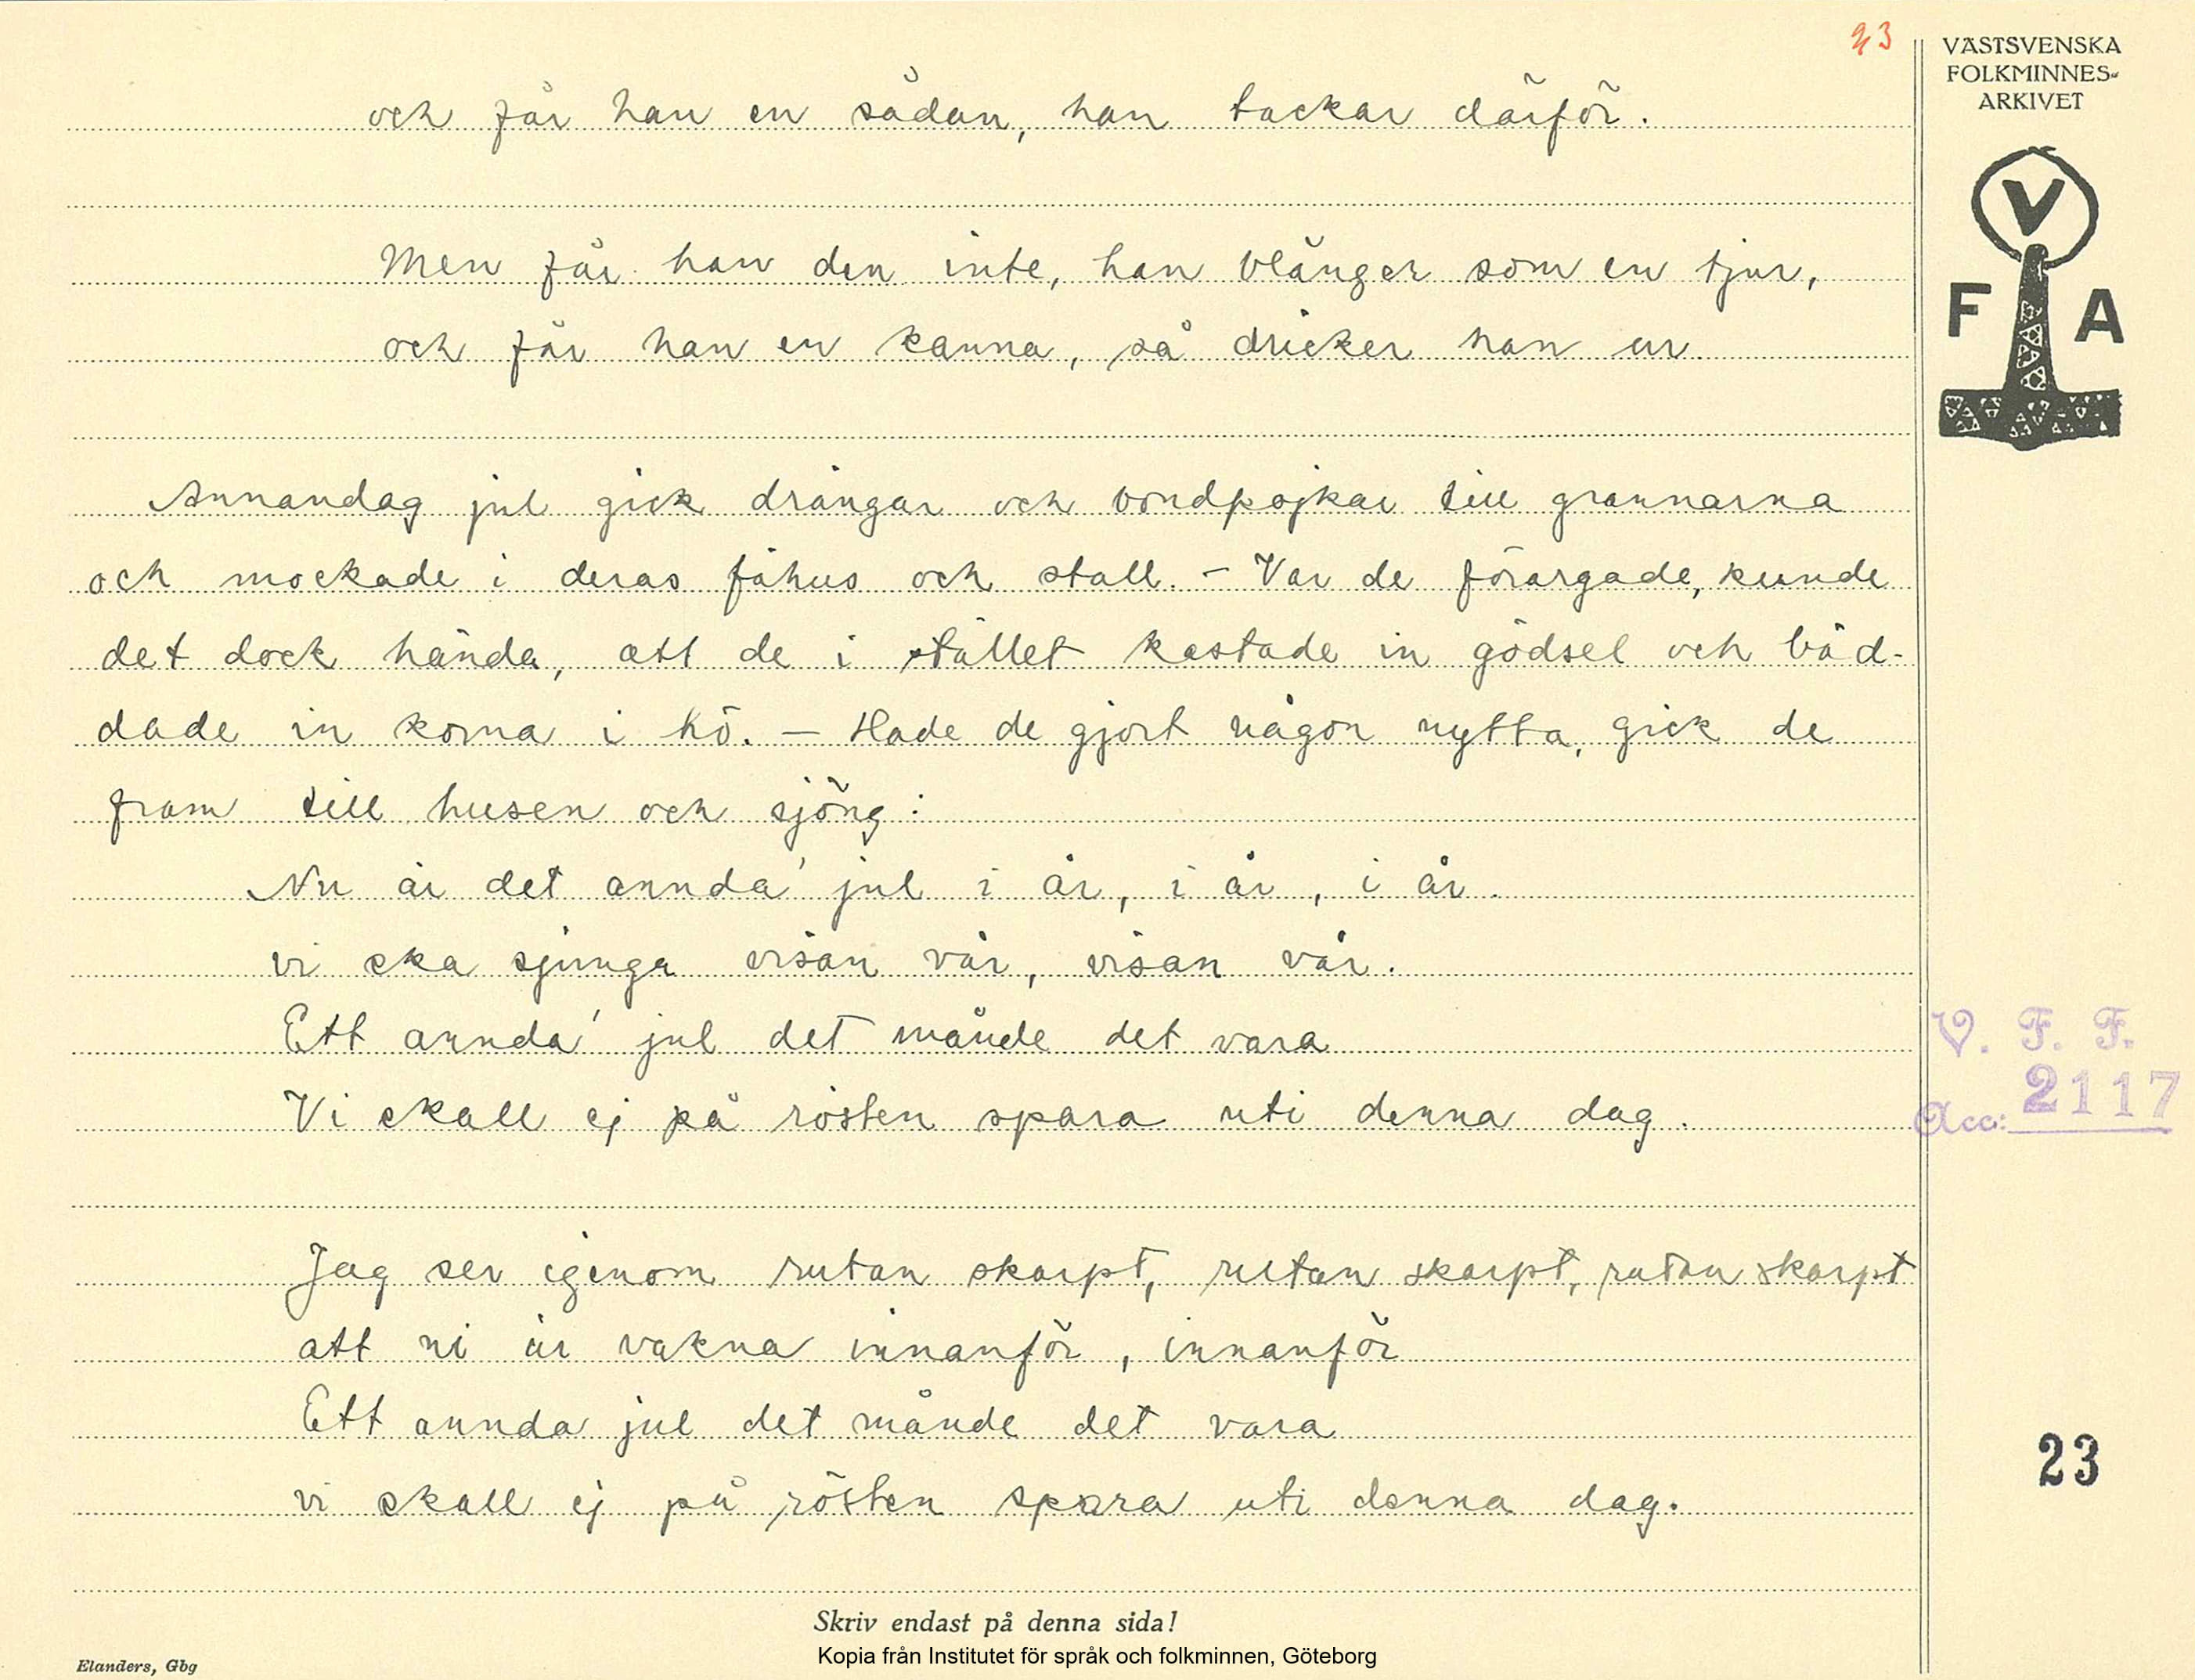 23
VÄSTSVENSKA
FOLKMINNES-
ARKIVET
V
F A
och får han en sådan, han tackar därför.
Men får han den inte, han blänger som en tjur,
och får han en kanna, så dricker han ur.
Annandag jul gick drängar och bondpojkar till grannarna
och mockade i deras fähus och stall. - Var de förargade, kunde
det dock hända, att de i stället kastade in gödsel och bäd-
dade in korna i hö. - Hade de gjort någon nytta, gick de
fram till husen och sjöng:
Nu är det annda' jul i år, i år, i år.
vi ska sjunga visan vår, visan vår.
Ett annda' jul det månde det vara
Vi skall ej på rösten spara uti denna dag.
V. F. F.
Acc: 2117
Jag ser igenom rutan skarpt, rutan skarpt, rutan skarpt
att ni är vakna innanför, innanför
Ett annda jul det månde det vara
vi skall ej på rösten spara uti denna dag.
23
Skriv endast på denna sida!
Kopia från Institutet för språk och folkminnen, Göteborg
Elanders, Gbg